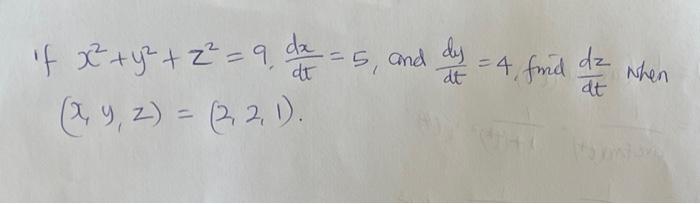 If x² + y² + z² = 9, dx/dt = 5, and dy/dt = 4, find dz/dt when
(x, y, z) = (2, 2, 1).